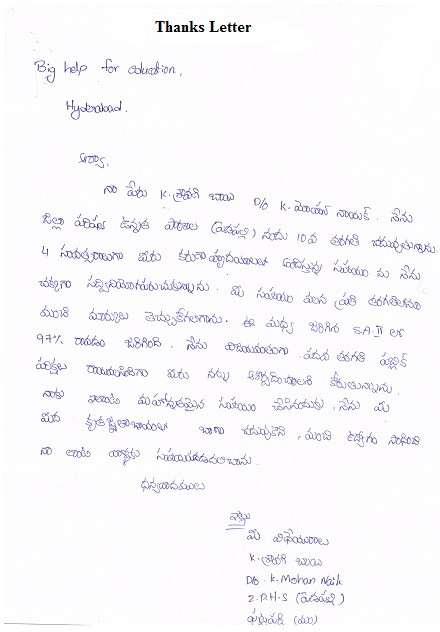 Thanks Letter
Big help for education,
Hyderabad.
ఆర్యా,
నా పేరు K. శ్రావణి బాయి D/o K. మోహన్ నాయక్. నేను
జిల్లా పరిషత్ ఉన్నత పాఠశాల నందు 10వ తరగతి చదువుతున్నాను.
4 సంవత్సరాలుగా మీరు అందిస్తున్న సహాయం ను నేను
చక్కగా సద్వినియోగపరుచుకున్నాను. మీ సహాయం వలన ప్రతి తరగతిలోనూ
మంచి మార్కులు తెచ్చుకోగలిగాను. ఈ మధ్య జరిగిన S.A.II లో
97% రావడం జరిగింది. నేను విజయవంతంగా పదవ తరగతి పబ్లిక్
పరీక్షలు మీరు నన్ను ఆశీర్వదించాలని కోరుతున్నాను.
నాకు ఇలాంటి మహోన్నతమైన సహాయం చేసినందుకు, నేను మీ
మీద బాగా చదువుకొని, మంచి ఉద్యోగం సాధించి
నా లాంటి
ధన్యవాదములు
ఇట్లు
మీ విధేయురాలు
K. శ్రావణి బాయి
D/o. K. Mohan Naik
Z.P.H.S